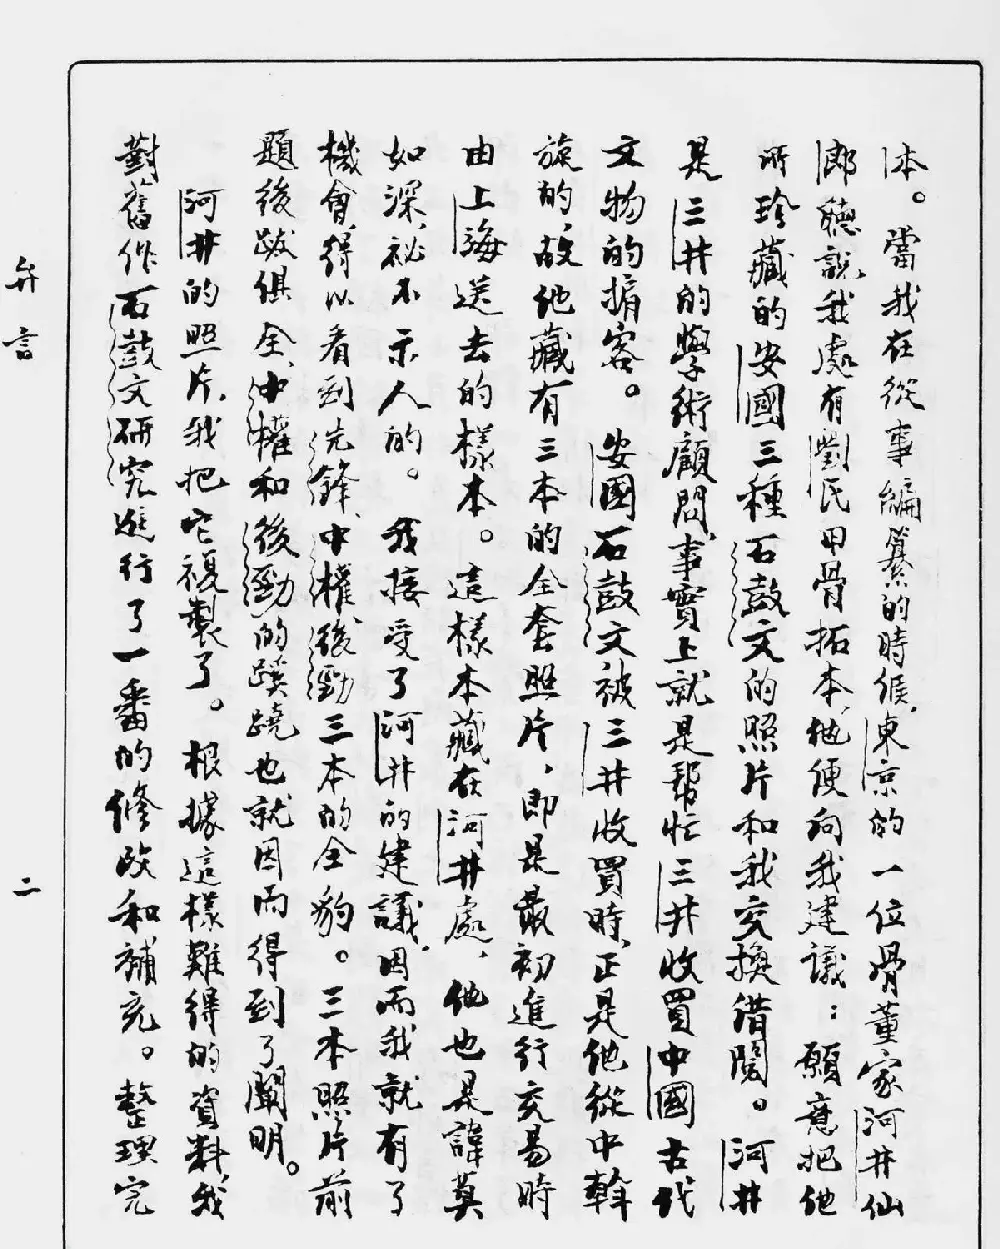 本。當我在從事編纂的時候，東京的一位骨董家河井仙
郎聽說我處有劉氏甲骨拓本，他便向我建議：願意把他
所珍藏的安國三種石鼓文的照片和我交換借閱。河井
是三井的學術顧問，事實上就是幫忙三井收買中國古代
文物的掮客。安國石鼓文被三井收買時，正是他從中斡
旋的，故他藏有三本的全套照片，即是最初進行交易時
由上海送去的樣本。這樣本藏在河井處，他也是諱莫
如深，祕不示人的。我接受了河井的建議，因而我就有了
機會，得以看到先鋒、中權、後勁三本的全豹。三本照片前
題後跋俱全，中權和後勁的蹊蹺也就因而得到了闡明。
河井的照片，我把它複製了。根據這樣難得的資料，我
對舊作石鼓文研究進行了一番的修改和補充。整理完
弁言
二